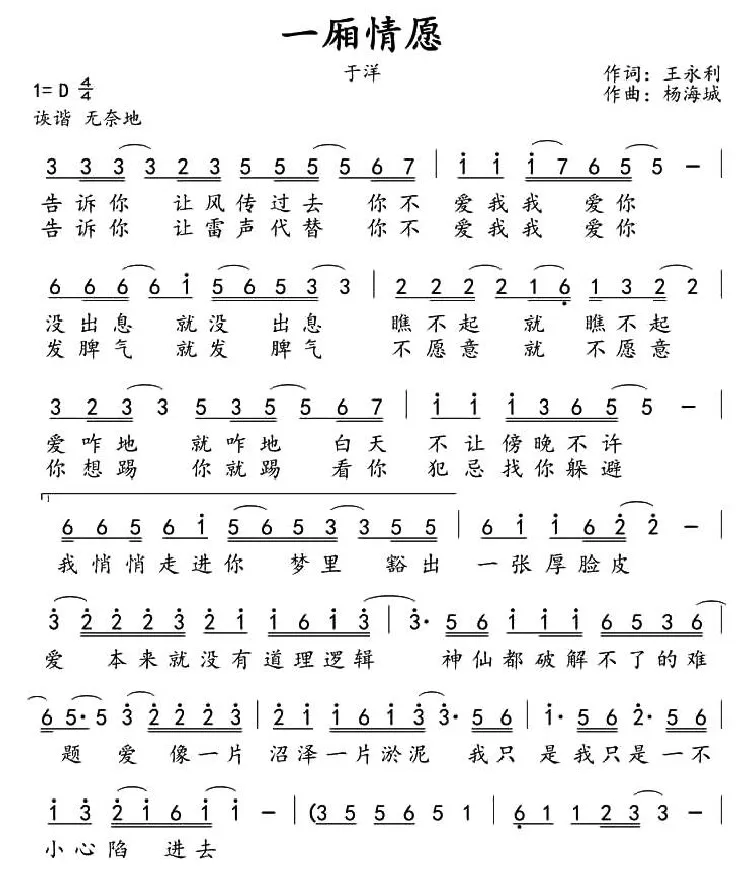 一厢情愿
于洋
作词：王永利
1= D 4/4
作曲：杨海城
诙谐 无奈地
3 3 3 3 2 3 5 5 5 5 6 7 | i i i 7 6 5 5 − |
告诉你 让风传过去 你不 爱我我 爱你
告诉你 让雷声代替 你不 爱我我 爱你
6 6 6 6 i 5 6 5 3 3 | 2 2 2 2 1 6 1 3 2 2 |
没出息 就没 出息 瞧不起 就 瞧不起
发脾气 就发 脾气 不愿意 就 不愿意
3 2 3 3 5 3 5 5 6 7 | i i i 3 6 5 5 − |
爱咋地 就咋地 白天 不让傍晚不许
你想踢 你就踢 看你 犯忌找你躲避
1
6 6 5 6 i 5 6 5 3 3 5 5 | 6 i i 6 2 2 − |
我悄悄走进你 梦里 豁出 一张厚脸皮
3 2 2 2 3 2 i i 6 i 3 | 3· 5 6 i i i 6 5 3 6 |
爱 本来就没有道理逻辑 神仙都破解不了的难
6 5· 5 3 2 2 2 3 | 2 i i 6 i 3 3· 5 6 | i· 5 6 2· 5 6 |
题 爱 像一片 沼泽一片淤泥 我只 是我只是一不
i 3 2 i 6 i i − | (3 5 5 6 5 1 | 6 1 1 2 3 3 − |
小心陷 进去